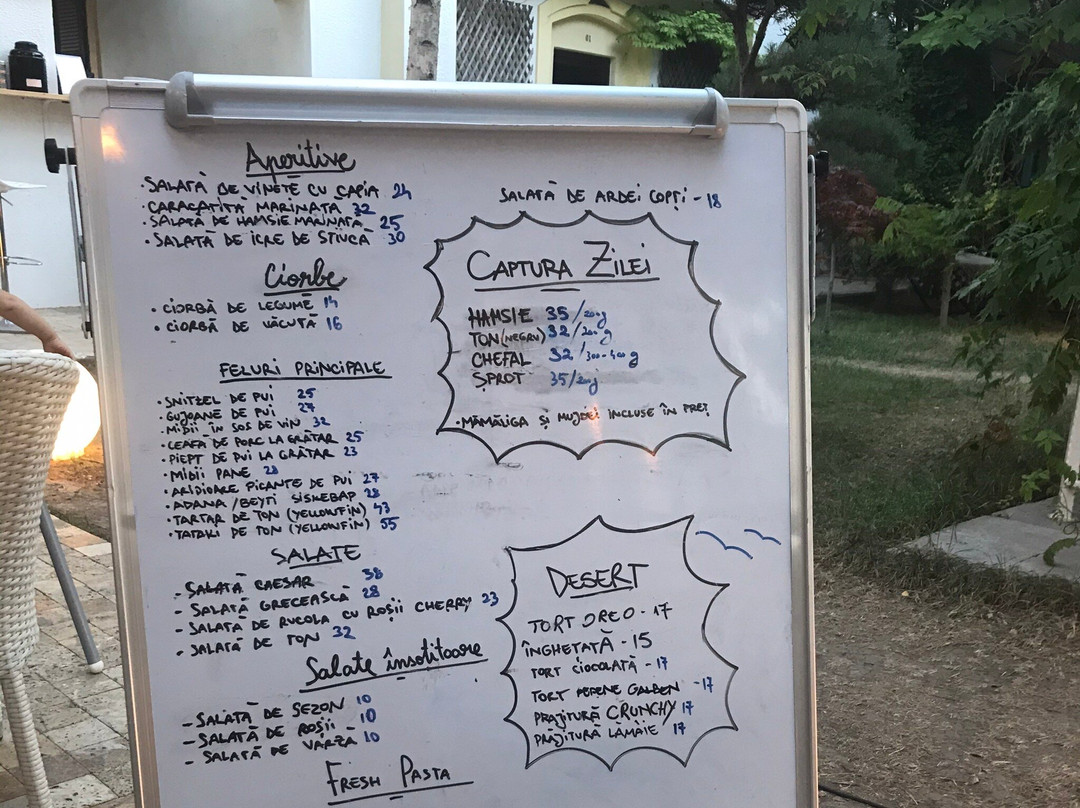 Aperitive
·SALATĂ DE VINETE CU CAPIA 24
·CARACATIȚĂ MARINATĂ 32
·SALATĂ DE HAMSIE MARINATĂ 25
·SALATĂ DE ICRE DE STIUCĂ 30
SALATĂ DE ARDEI COPȚI - 18
Ciorbe
· CIORBĂ DE LEGUME 14
· CIORBĂ DE VĂCUTĂ 16
CAPTURA ZILEI
HAMSIE 35/200g
TON(NEGRU) 32/200g
CHEFAL 32/300-400g
ȘPROT 35/200g
·MĂMĂLIGA ȘI MUJDEI INCLUSE ÎN PREȚ
FELURI PRINCIPALE
·SNITZEL DE PUI 25
·GUJOANE DE PUI 27
·MIDII ÎN SOS DE VIN 32
·CEAFĂ DE PORC LA GRĂTAR 25
·PIEPT DE PUI LA GRĂTAR 23
·MIDII PANE 28
·ARIPIOARE PICANTE DE PUI 27
·ADANA/BEYTI SISKEBAP 28
·TARTAR DE TON (YELLOWFIN) 43
·TATAKI DE TON (YELLOWFIN) 55
SALATE
- SALATĂ CAESAR 38
- SALATĂ GRECEASCĂ 28
- SALATĂ DE RUCOLA CU ROȘII CHERRY 23
- SALATĂ DE TON 32
Salate însotitoare
- SALATĂ DE SEZON 10
- SALATĂ DE ROȘII 10
- SALATĂ DE VARZĂ 10
FRESH PASTA
DESERT
TORT OREO - 17
ÎNGHETATĂ - 15
TORT CIOCOLATĂ - 17
TORT PEPENE GALBEN - 17
PRAJITURĂ CRUNCHY 17
PRĂJITURĂ LĂMÂIE 17